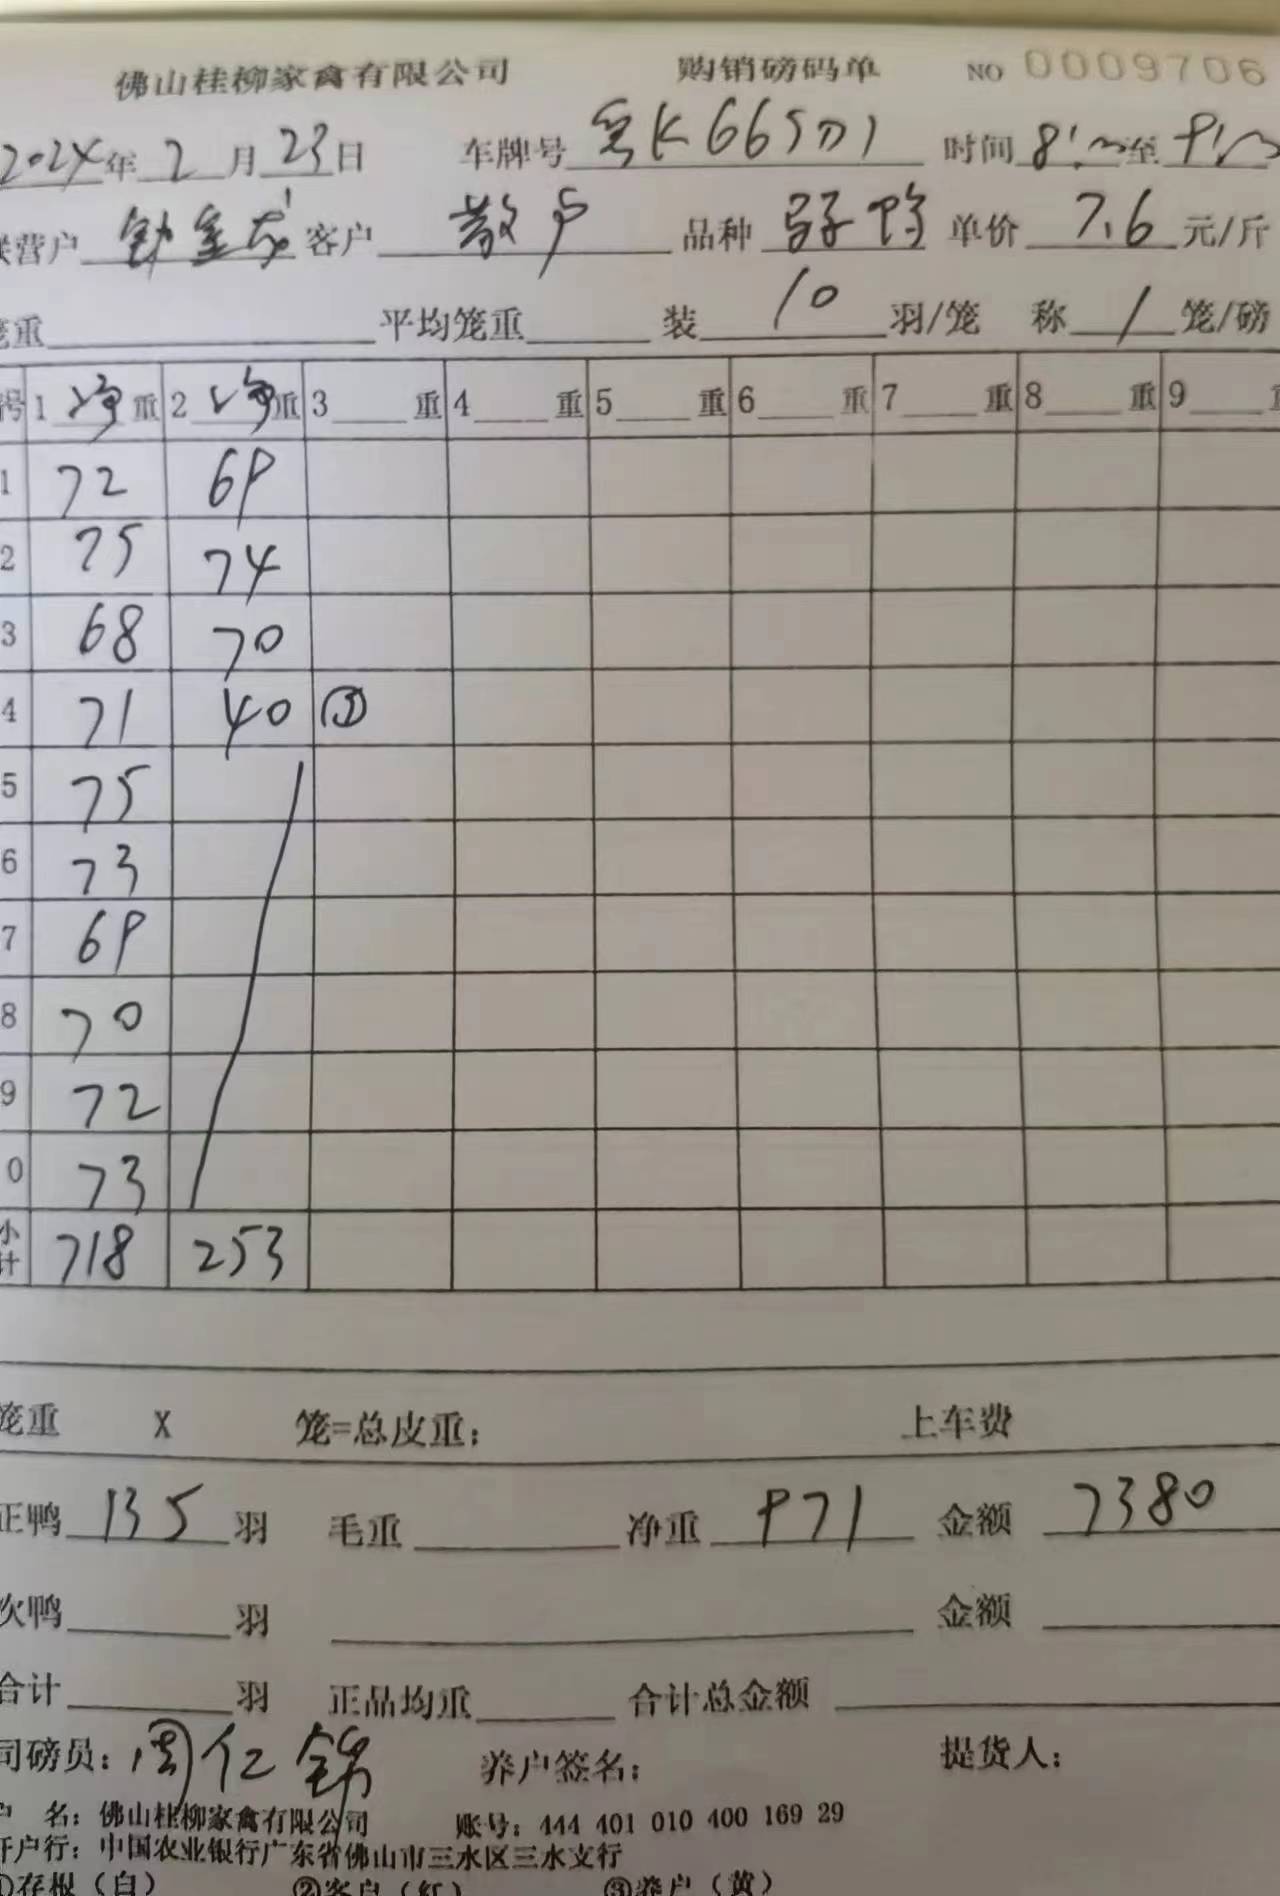 佛山桂柳家禽有限公司 购销磅码单 NO 0009706
2024年 2 月 23 日 车牌号 K665 时间 8: 至 9:
营户 客户 散户 品种 鸭 单价 7.6 元/斤
重 平均笼重 装 10 羽/笼 称 1 笼/磅
号 1 净 重 2 净 重 3 重 4 重 5 重 6 重 7 重 8 重 9
1 72 69
2 75 74
3 68 70
4 71 40
5 75
6 73
7 69
8 70
9 72
0 73
小计 718 253
笼重 X 笼=总皮重: 上车费
正鸭 135 羽 毛重 净重 971 金额 7380
次鸭 羽 金额
合计 羽 正品均重 合计总金额
司磅员: 周仁锦 养户签名: 提货人:
户 名: 佛山桂柳家禽有限公司 账号: 444 401 010 400 169 29
开户行: 中国农业银行广东省佛山市三水区三水支行
①存根（白） ②客户（红） ③养户（黄）